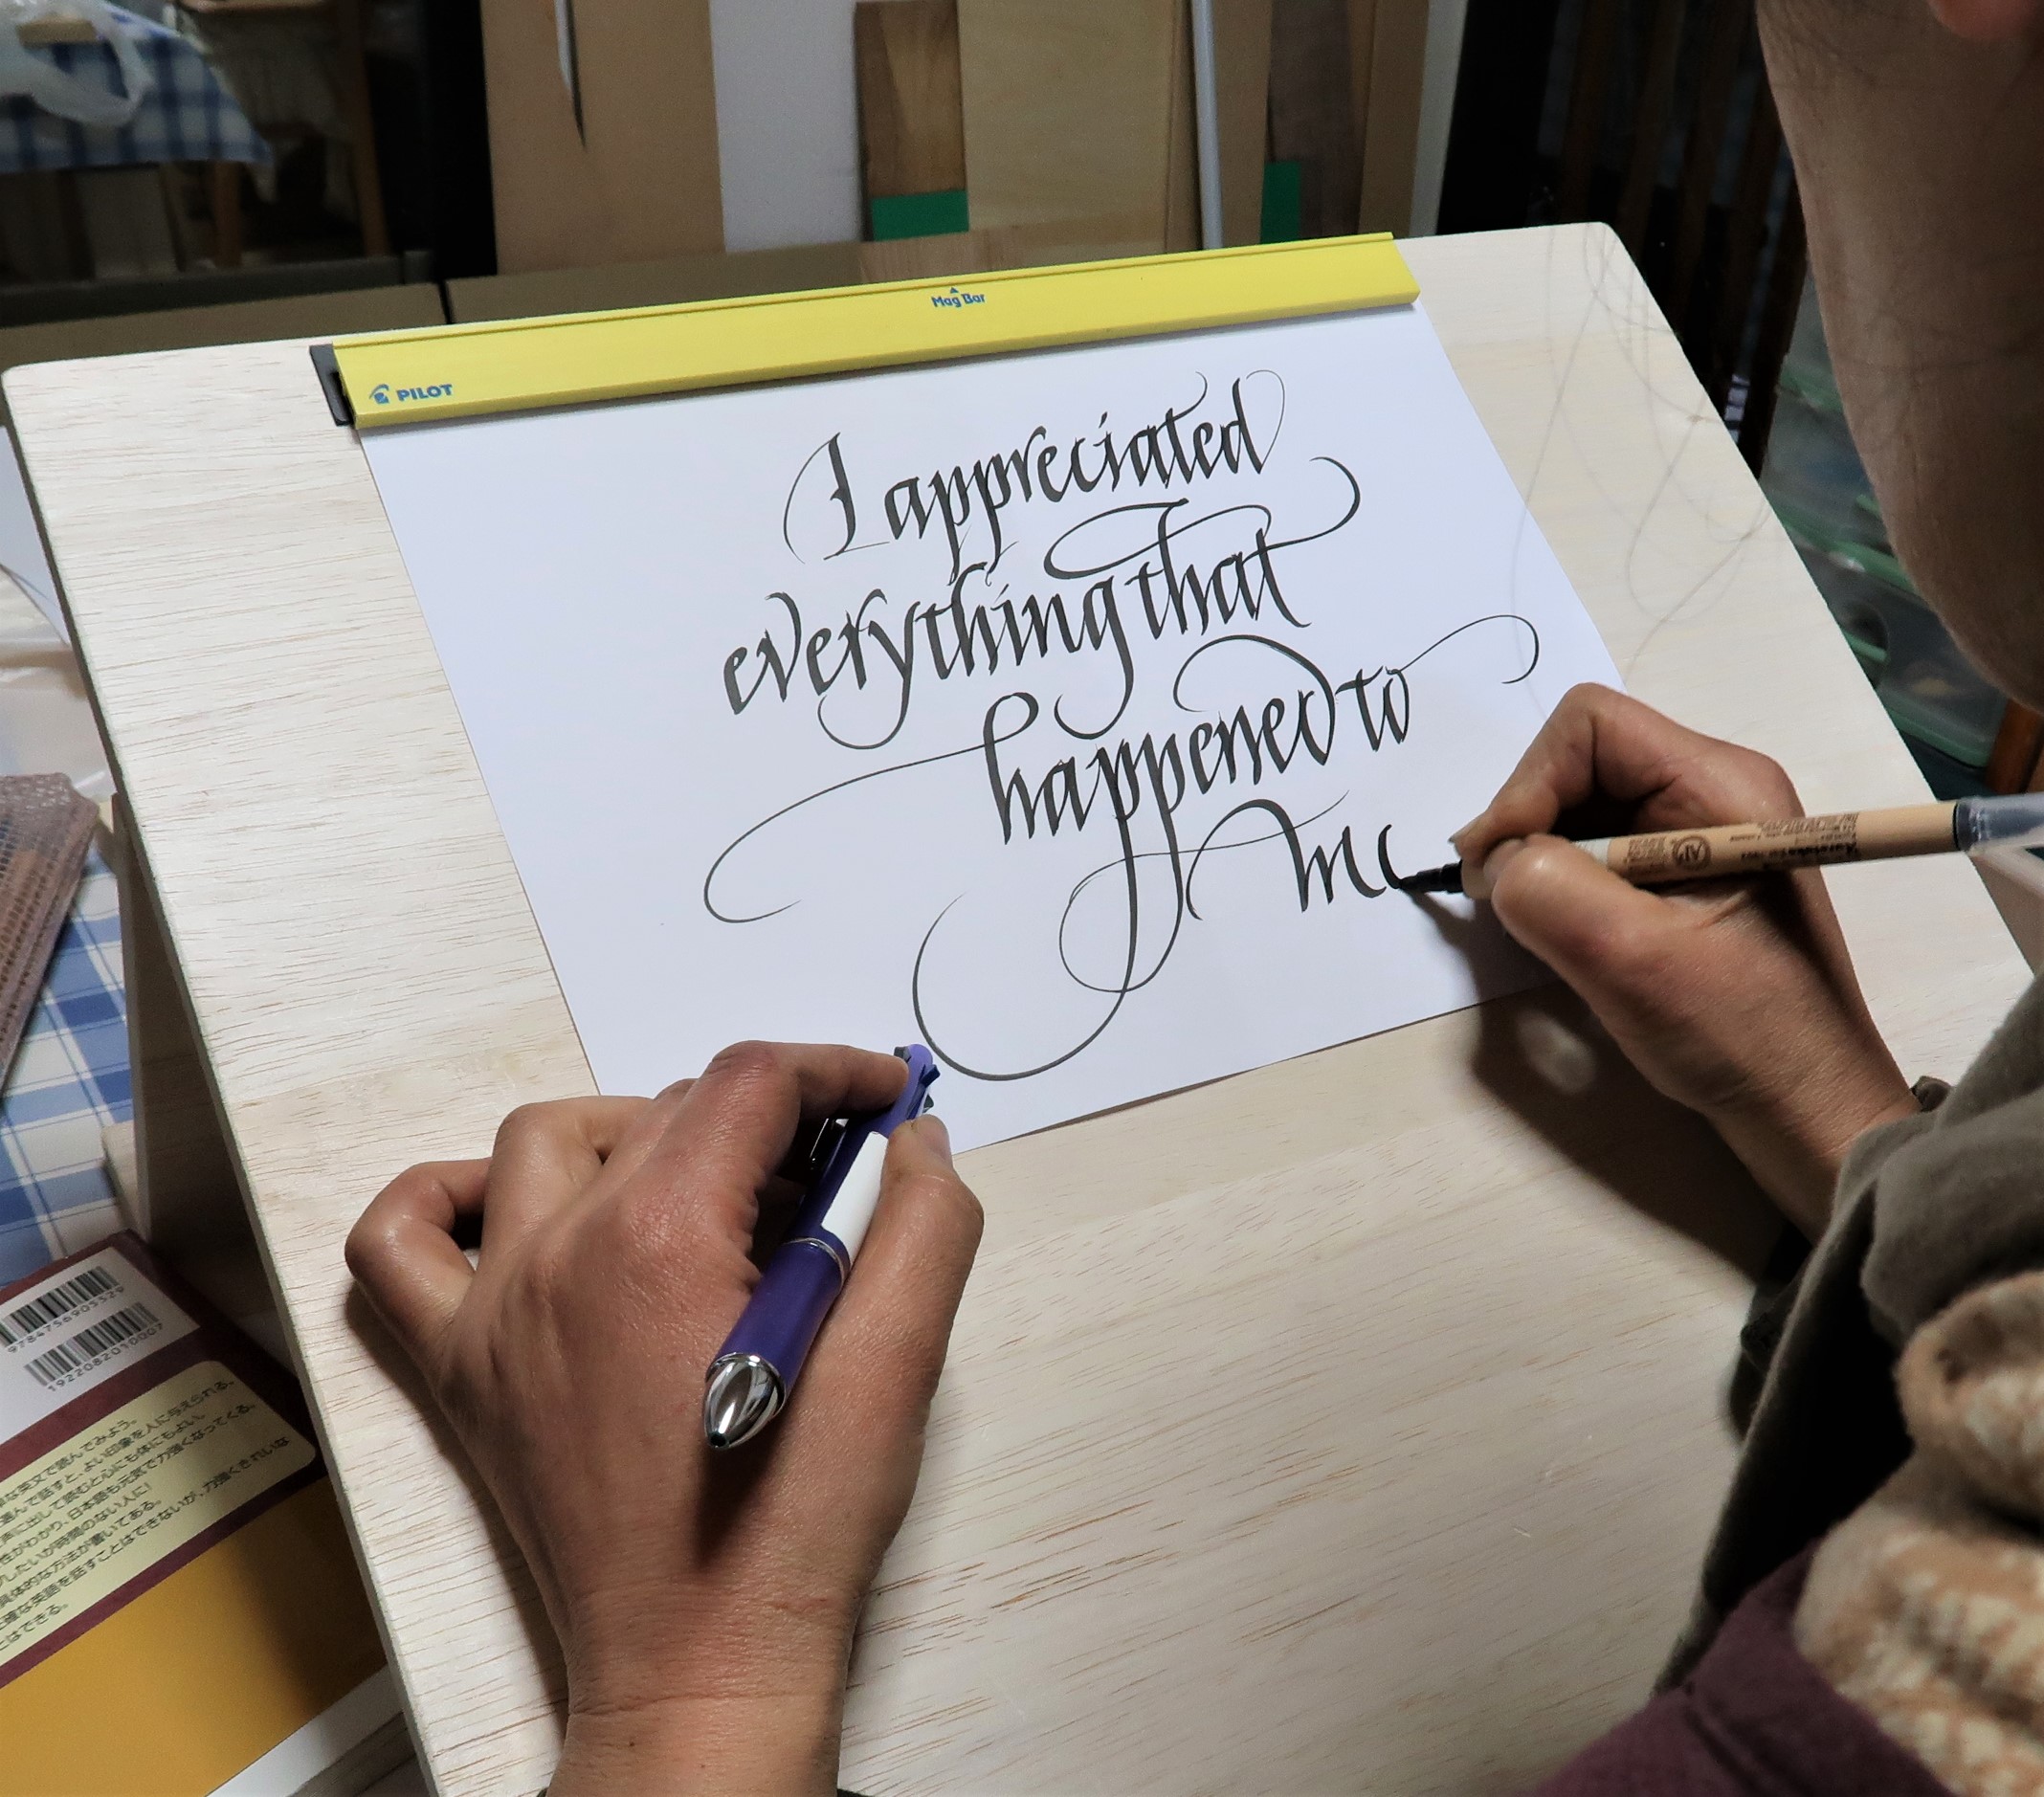 Mag Bar
PILOT
I appreciated
everything that
happened to
mc
9784756903529
1922082010007
な英文で読んでみよう。
んで話すと、よい印象を人に与えられる。
声に出して読むと心にも体にもよい。
性がわかり、日本語も元気で力強くなってくる。
したいが時間のない人に!
具体的な方法が書いてある。
確な英語を話すことはできないが、力強くきれいな
とはできる。